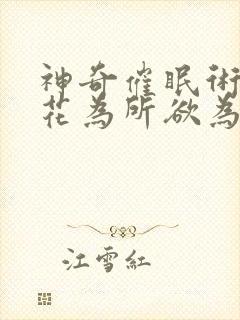 神奇催眠術
花為所欲為
江雪紅